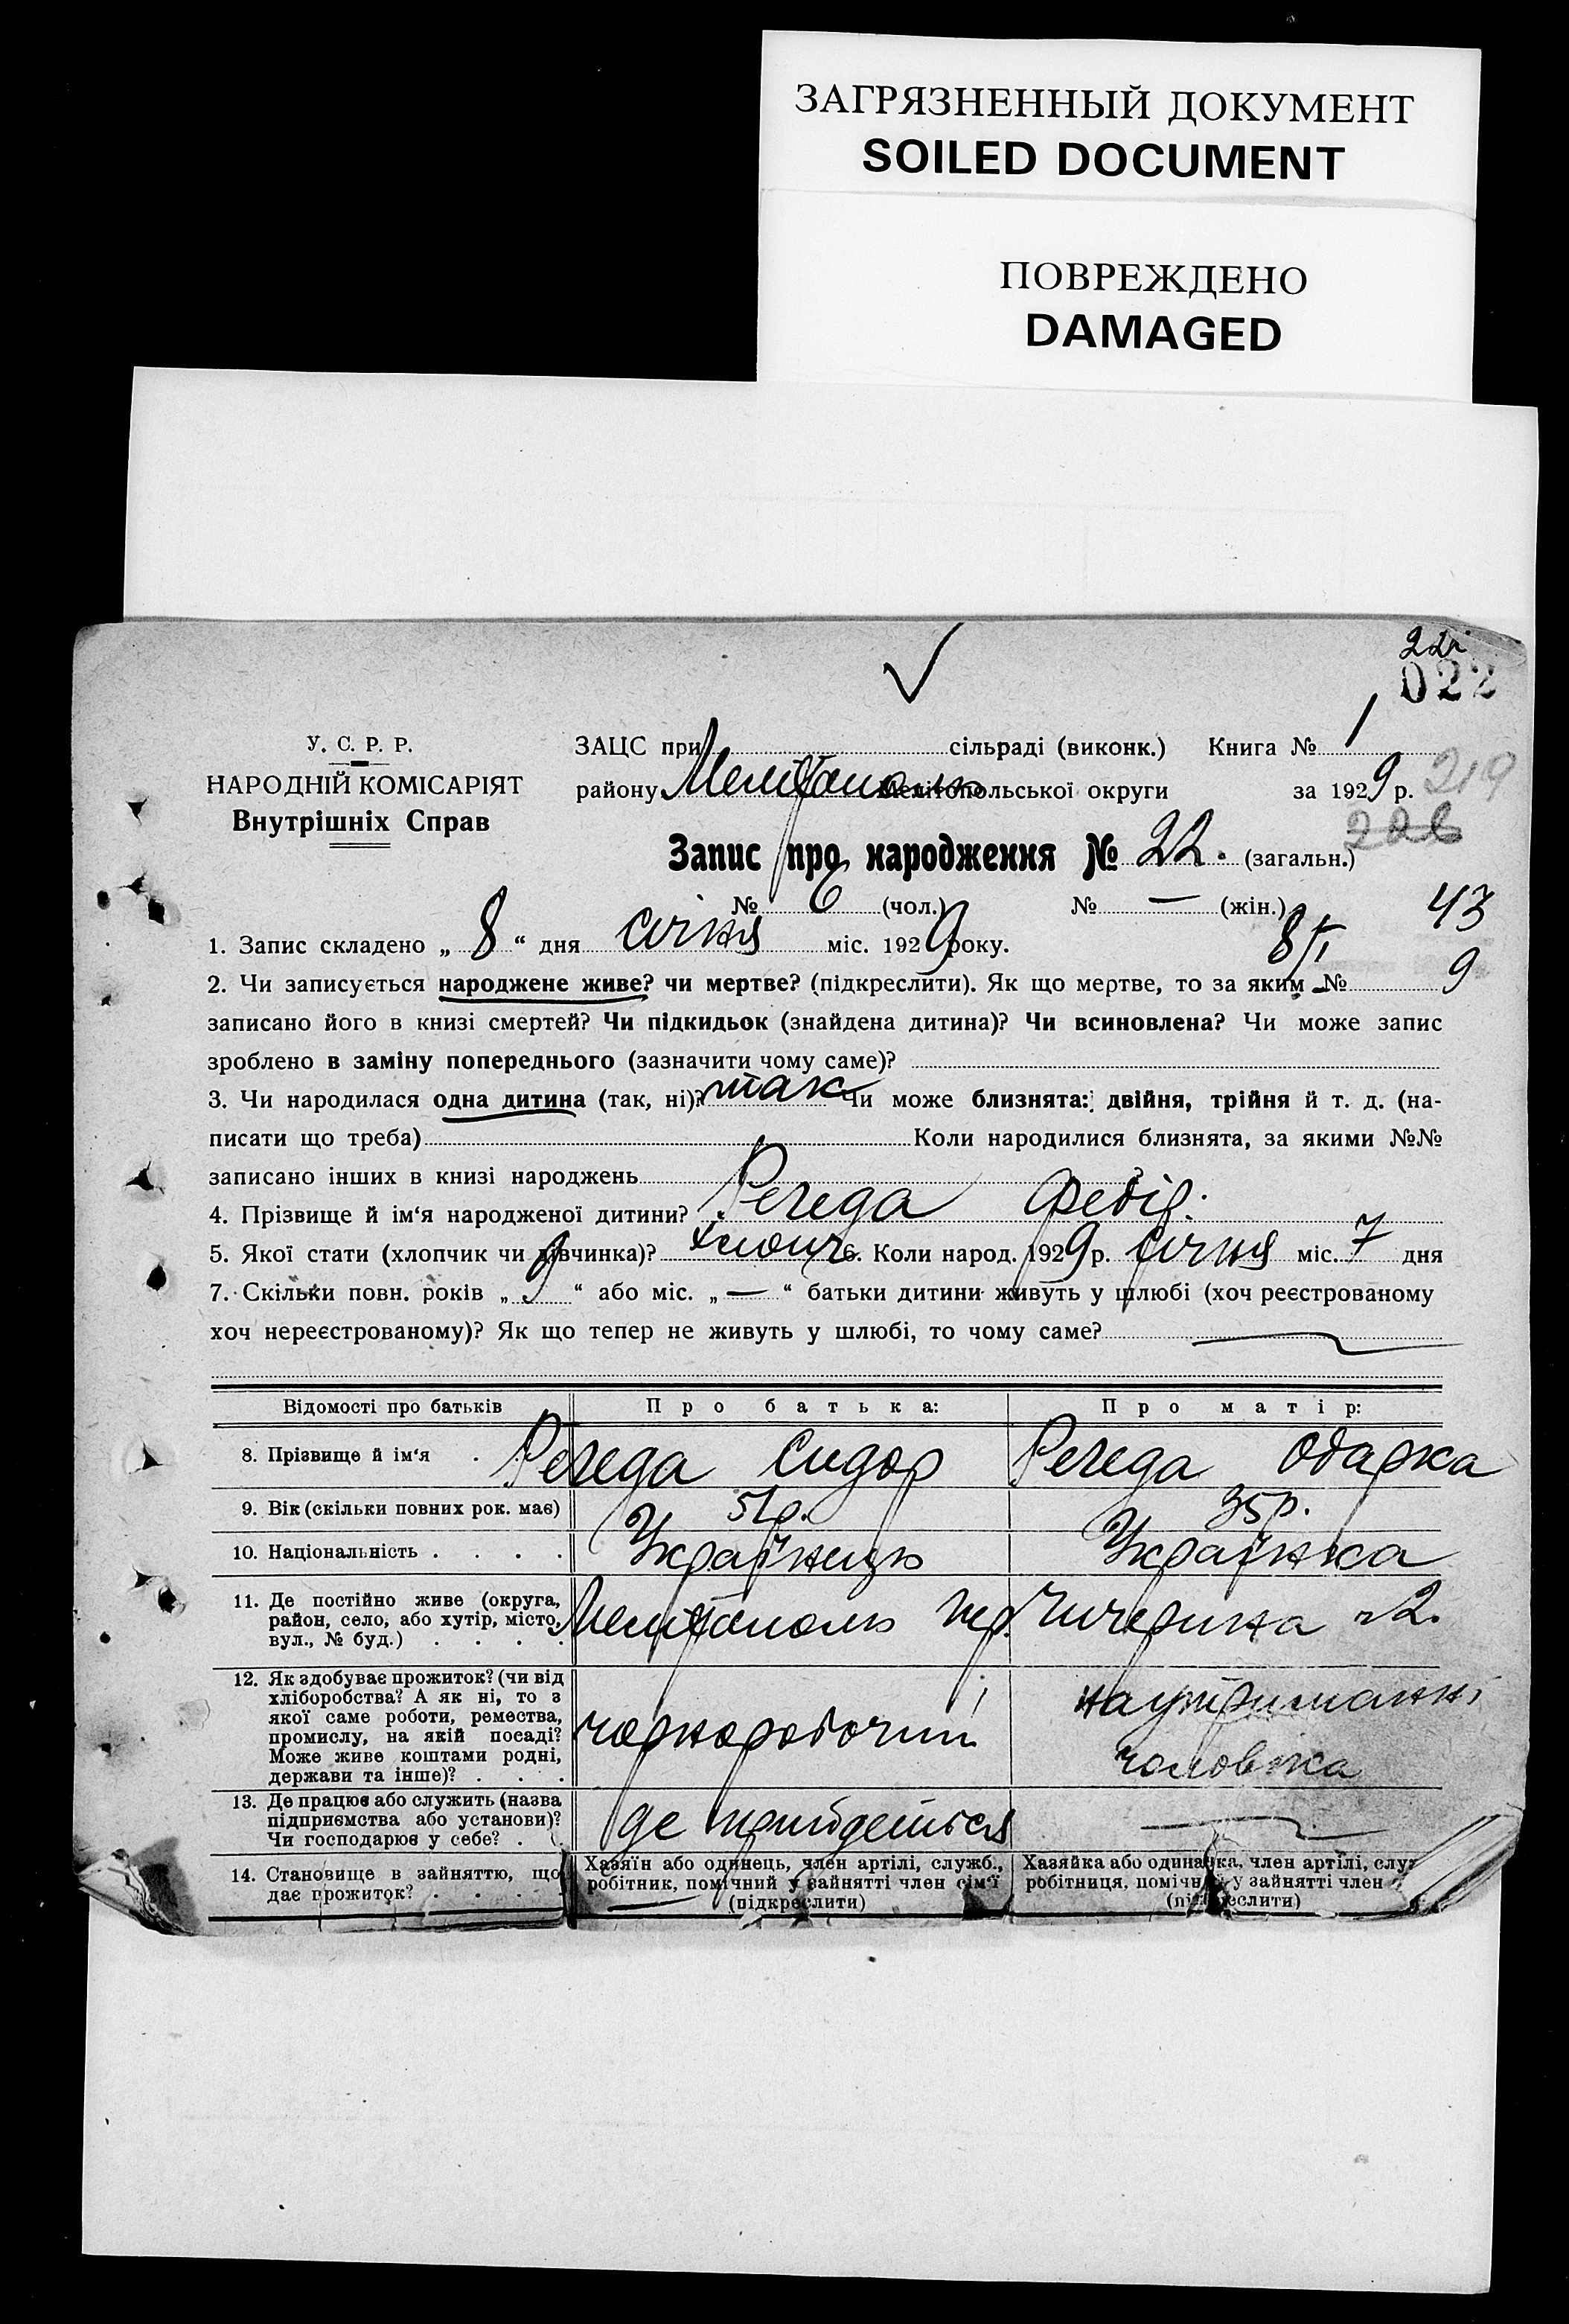 ЗАГРЯЗНЕННЫЙ ДОКУМЕНТ
SOILED DOCUMENT
ПОВРЕЖДЕНО
DAMAGED
022
У. С. Р. Р.
НАРОДНІЙ КОМІСАРІЯТ
Внутрішніх Справ
ЗАЦС при сільраді (виконк.) Книга № 1
району Мелітополь Мелітопольської округи за 1929 р. 219
Запис про народження № 22. (загальн.)
№ 6 (чол.) № — (жін.) 43
1. Запис складено „ 8 “ дня січня міс. 1929 року. 8/I
2. Чи записується народжене живе? чи мертве? (підкреслити). Як що мертве, то за яким № 9
записано його в книзі смертей? Чи підкидьок (знайдена дитина)? Чи всиновлена? Чи може запис
зроблено в заміну попереднього (зазначити чому саме)?
3. Чи народилася одна дитина (так, ні)? так Чи може близнята: двійня, трійня й т. д. (на-
писати що треба) Коли народилися близнята, за якими №№
записано інших в книзі народжень
4. Прізвище й ім‘я народженої дитини? Регеда Федір.
5. Якої стати (хлопчик чи дівчинка)? хлопч 6. Коли народ. 1929 р. січня міс. 7 дня
7. Скільки повн. років „ 9 “ або міс. „ — “ батьки дитини живуть у шлюбі (хоч реєстрованому
хоч нереєстрованому)? Як що тепер не живуть у шлюбі, то чому саме?
Відомості про батьків Про батька: Про матір:
8. Прізвище й ім‘я . Регеда Сидор Регеда Одарка
9. Вік (скільки повних рок. має) 51р. 35р.
10. Національність . . . . Українець Українка
11. Де постійно живе (округа,
район, село, або хутір, місто,
вул., № буд.) . . . . Мелітополь пер. Чичерина 2.
12. Як здобуває прожиток? (чи від
хліборобства? А як ні, то з
якої саме роботи, ремества,
промислу, на якій посаді?
Може живе коштами родні,
держави та інше)? . . . .
чорноробочий
на утриманні
чоловіка
13. Де працює або служить (назва
підприємства або установи)?
Чи господарює у себе? . .
де прийдеться
14. Становище в зайняттю, що
дає прожиток? . . . .
Хазяїн або одинець, член артілі, служб.,
робітник, помічний у зайнятті член сім‘ї
(підкреслити)
Хазяйка або одиначка, член артілі, служ
робітниця, помічн у зайнятті член
(підкреслити)